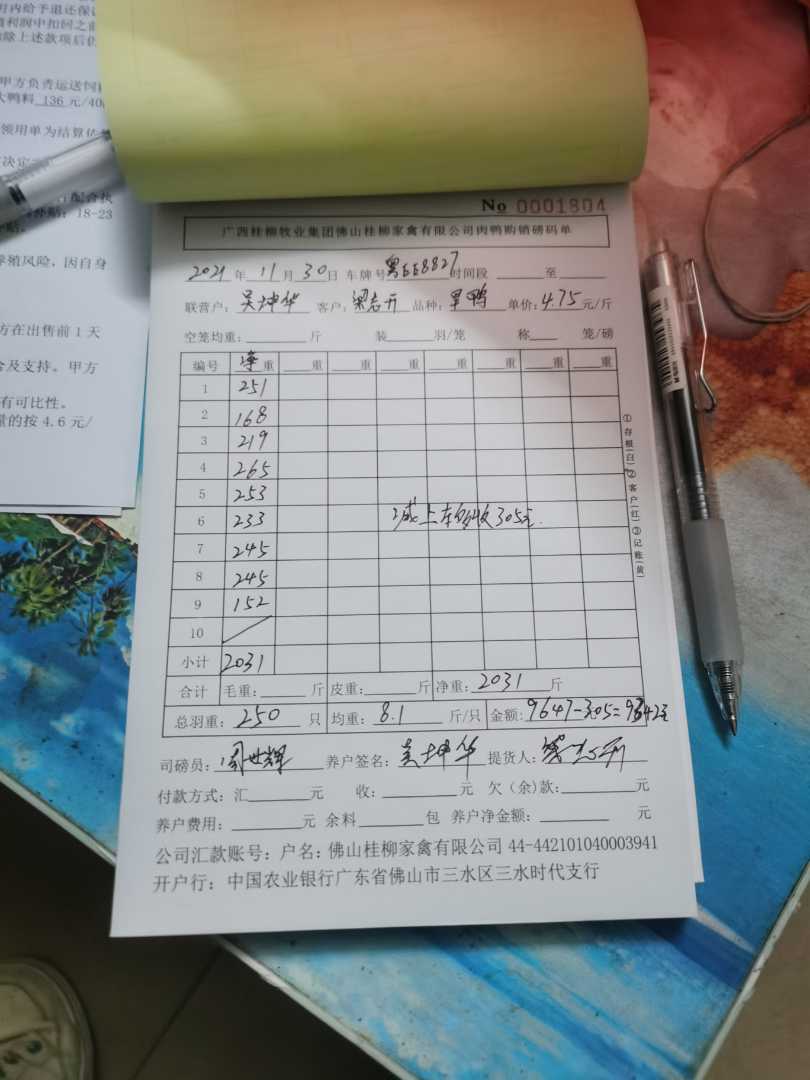 内给予退还保证
利润中扣回之前
除上述款项后仍
甲方负责运送饲
大鸭料 136 元/40
领用单为结算依
决定
配合执
18-23
养殖风险，因自身
方在出售前 1 天
合及支持。甲方
有可比性。
量的按 4.6 元/
No 0001804
广西桂柳牧业集团佛山桂柳家禽有限公司肉鸭购销磅码单
2021 年 11 月 30 日 车牌号 粤EE8827 时间段 至
联营户：吴坤华 客户：梁志开 品种：旱鸭 单价：4.75 元/斤
空笼均重： 斤 装 羽/笼 称 笼/磅
编号 净重 重 重 重 重 重 重
1 251
2 168
3 219
4 265
5 253
6 233 减上车多收305元.
7 245
8 245
9 152
10
小计 2031
合计 毛重： 斤 皮重： 斤 净重：2031 斤
总羽重：250 只 均重：8.1 斤/只 金额：9647-305=9342元
司磅员： 养户签名：吴坤华 提货人：梁志开
付款方式：汇 元 收： 元 欠（余）款： 元
养户费用： 元 余料 包 养户净金额： 元
公司汇款账号：户名：佛山桂柳家禽有限公司 44-442101040003941
开户行：中国农业银行广东省佛山市三水区三水时代支行
①存根（白）②客户（红）③记账（黄）